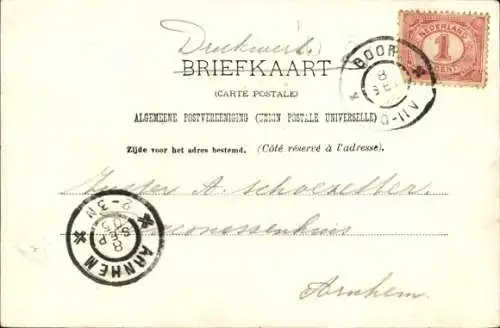 Drukwerk.
BRIEFKAART
(CARTE POSTALE)
ALGEMEENE POSTVEREENIGING (UNION POSTALE UNIVERSELLE)
Zijde voor het adres bestemd. (Côté réservé à l'adresse).
NEDERLAND
1
CENT
8
SEP
A. Schoevetter
Arnhem.
ARNHEM
8
SEP
2-3N